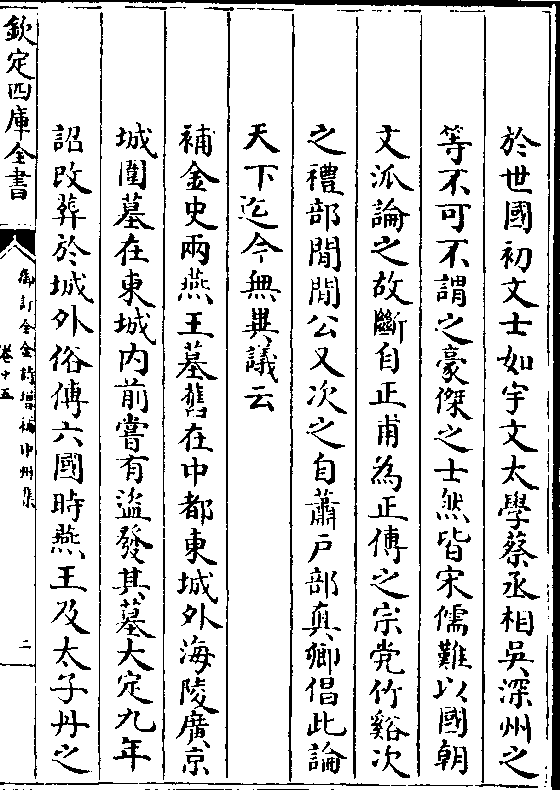 於世國初文士如宇文太學蔡丞相吳深州之
等不可不謂之豪傑之士然皆宋儒難以國朝
文派論之故斷自正甫為正傳之宗党竹谿次
之禮部閒閒公又次之自蕭户部真卿倡此論
天下迄今無異議云
補金史兩燕王墓舊在中都東城外海陵廣京
城圍墓在東城内前嘗有盜發其墓大定九年
詔改葬於城外俗傳六國時燕王及太子丹之
欽定四庫全書
御訂全金詩增補中州集
卷十五
二